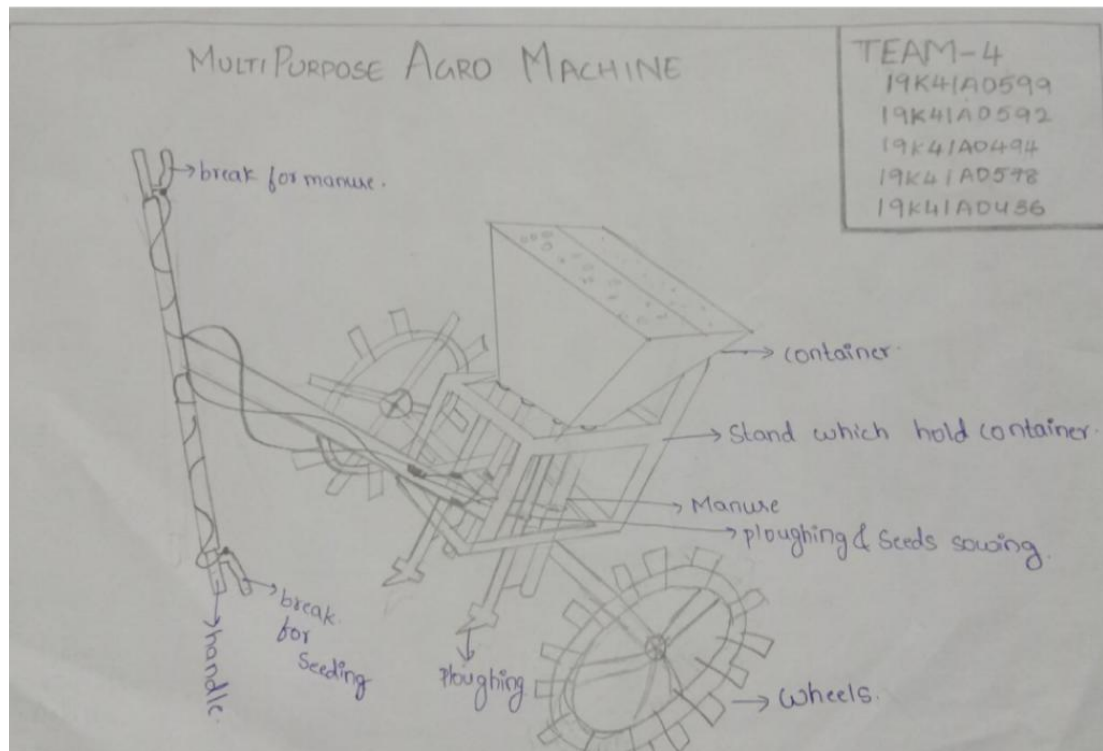 MULTIPURPOSE AGRO MACHINE
TEAM-4
19K41A0599
19K41A0592
19K41A0494
19K41A0598
19K41A0436
break for manure.
container.
Stand which hold container.
Manure
ploughing & Seeds sowing.
break
for
Seeding
handle.
ploughing
wheels.